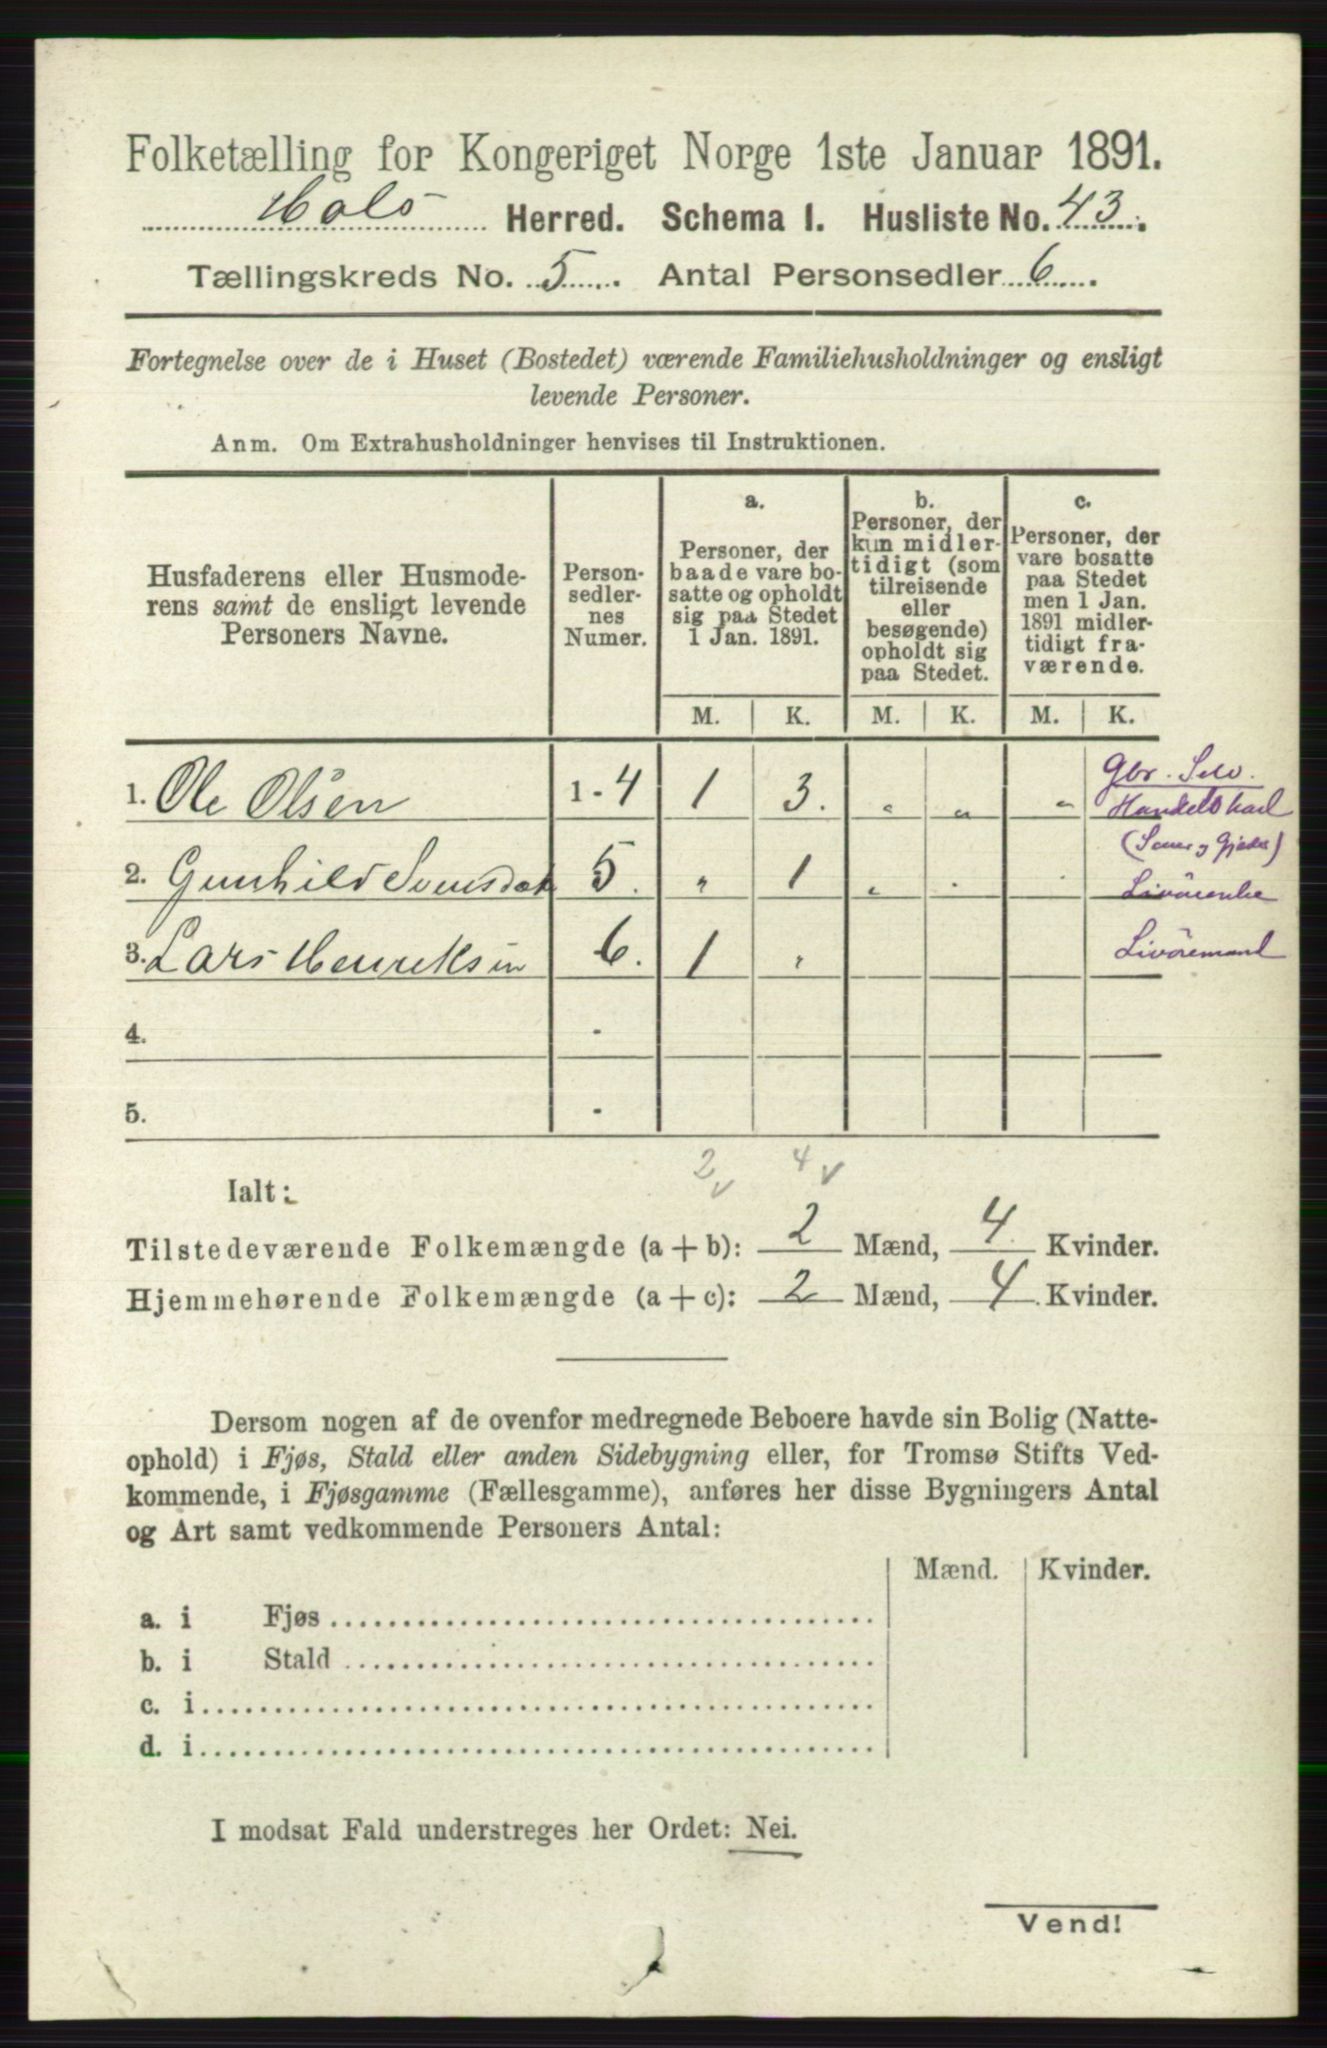 Folketælling for Kongeriget Norge 1ste Januar 1891.
Hols Herred. Schema I. Husliste No. 43.
Tællingskreds No. 5. Antal Personsedler 6.
Fortegnelse over de i Huset (Bostedet) værende Familiehusholdninger og ensligt
levende Personer.
Anm. Om Extrahusholdninger henvises til Instruktionen.
Husfaderens eller Husmode-
rens samt de ensligt levende
Personers Navne.
Person-
sedler-
nes
Numer.
a.
Personer, der
baade vare bo-
satte og opholdt
sig paa Stedet
1 Jan. 1891.
b.
Personer, der
kun midler-
tidigt (som
tilreisende
eller
besøgende)
opholdt sig
paa Stedet.
c.
Personer, der
vare bosatte
paa Stedet
men 1 Jan.
1891 midler-
tidigt fra-
værende.
M. K. M. K. M. K.
Gbr. Selv.
1. Ole Olsen 1-4 1 3. " " " Handelskarl
2. Gunhild Svensdat 5. " 1 " . . Livörenke
3. Lars Henriksen 6. 1 " Livöremand
4. -
5. -
2 4
Ialt:
Tilstedeværende Folkemængde (a + b): 2 Mænd, 4 Kvinder.
Hjemmehørende Folkemængde (a + c): 2 Mænd, 4 Kvinder.
Dersom nogen af de ovenfor medregnede Beboere havde sin Bolig (Natte-
ophold) i Fjøs, Stald eller anden Sidebygning eller, for Tromsø Stifts Ved-
kommende, i Fjøsgamme (Fællesgamme), anføres her disse Bygningers Antal
og Art samt vedkommende Personers Antal:
Mænd. Kvinder.
a. i Fjøs
b. i Stald
c. i
d. i
I modsat Fald understreges her Ordet: Nei.
Vend!